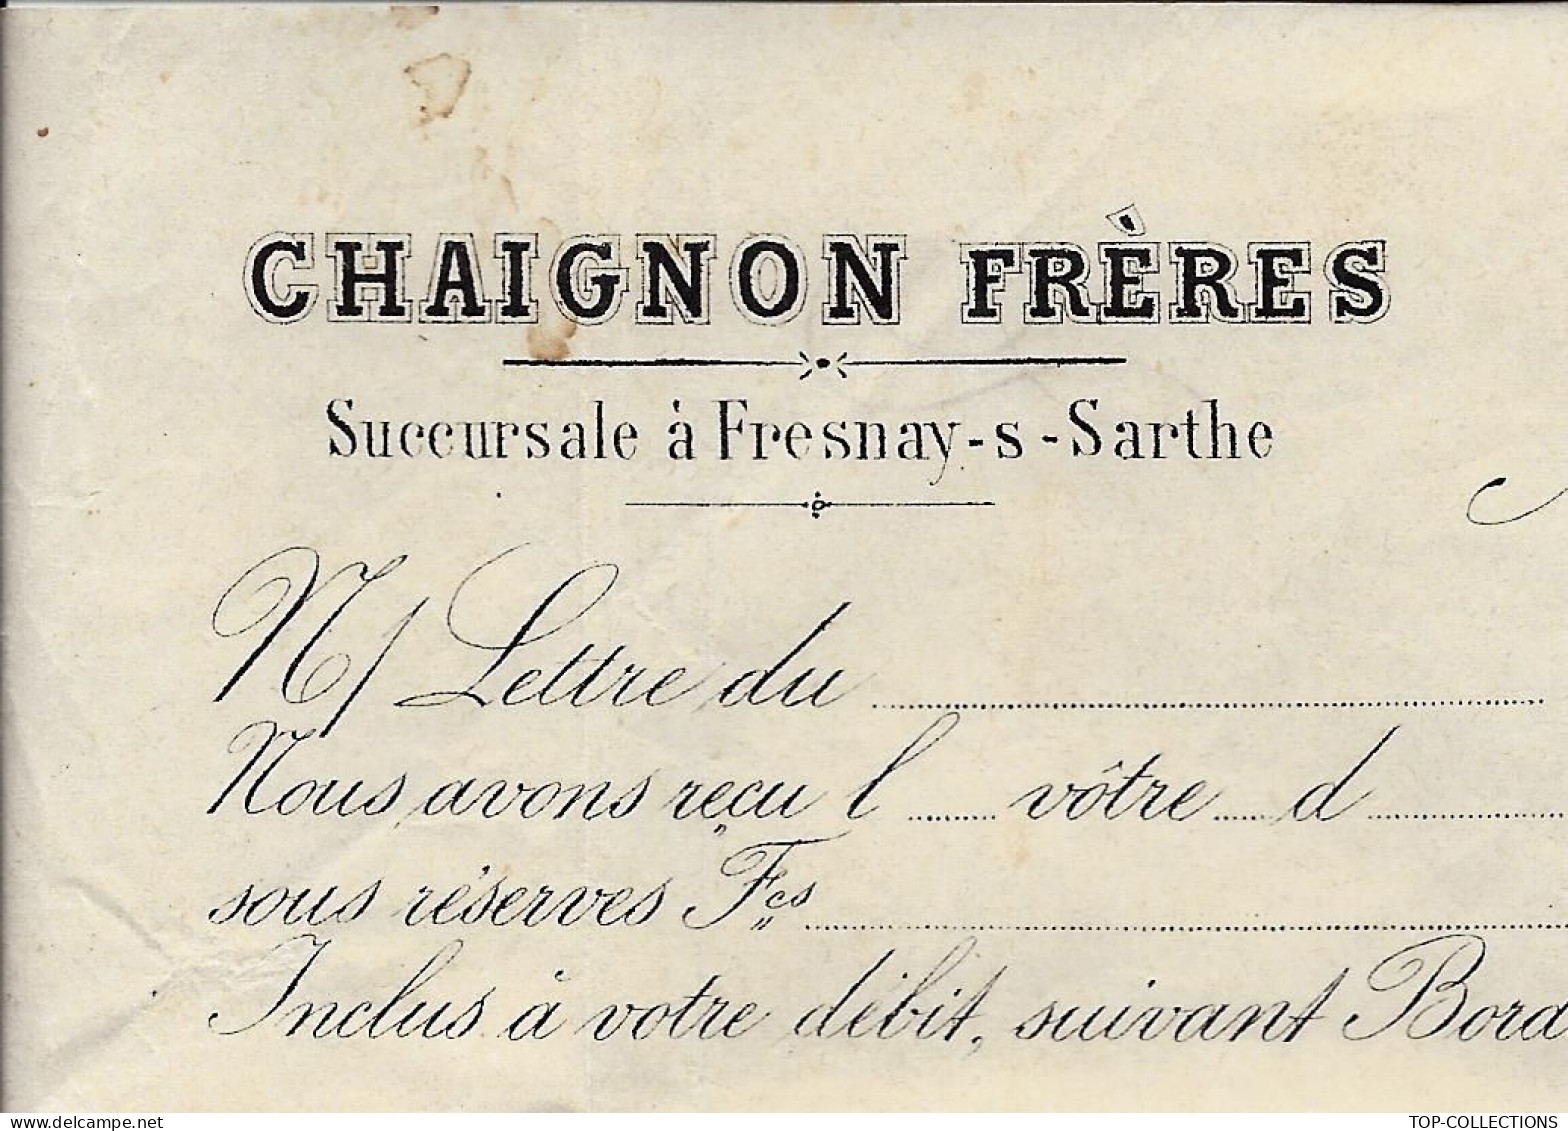 CHAIGNON FRÈRES
Succursale à Fresnay-s-Sarthe
N/ Lettre du
Nous avons reçu l vôtre d
sous réserves Fcs
Inclus à votre débit, suivant Bord
www.delcampe.net
TOP-COLLECTIONS